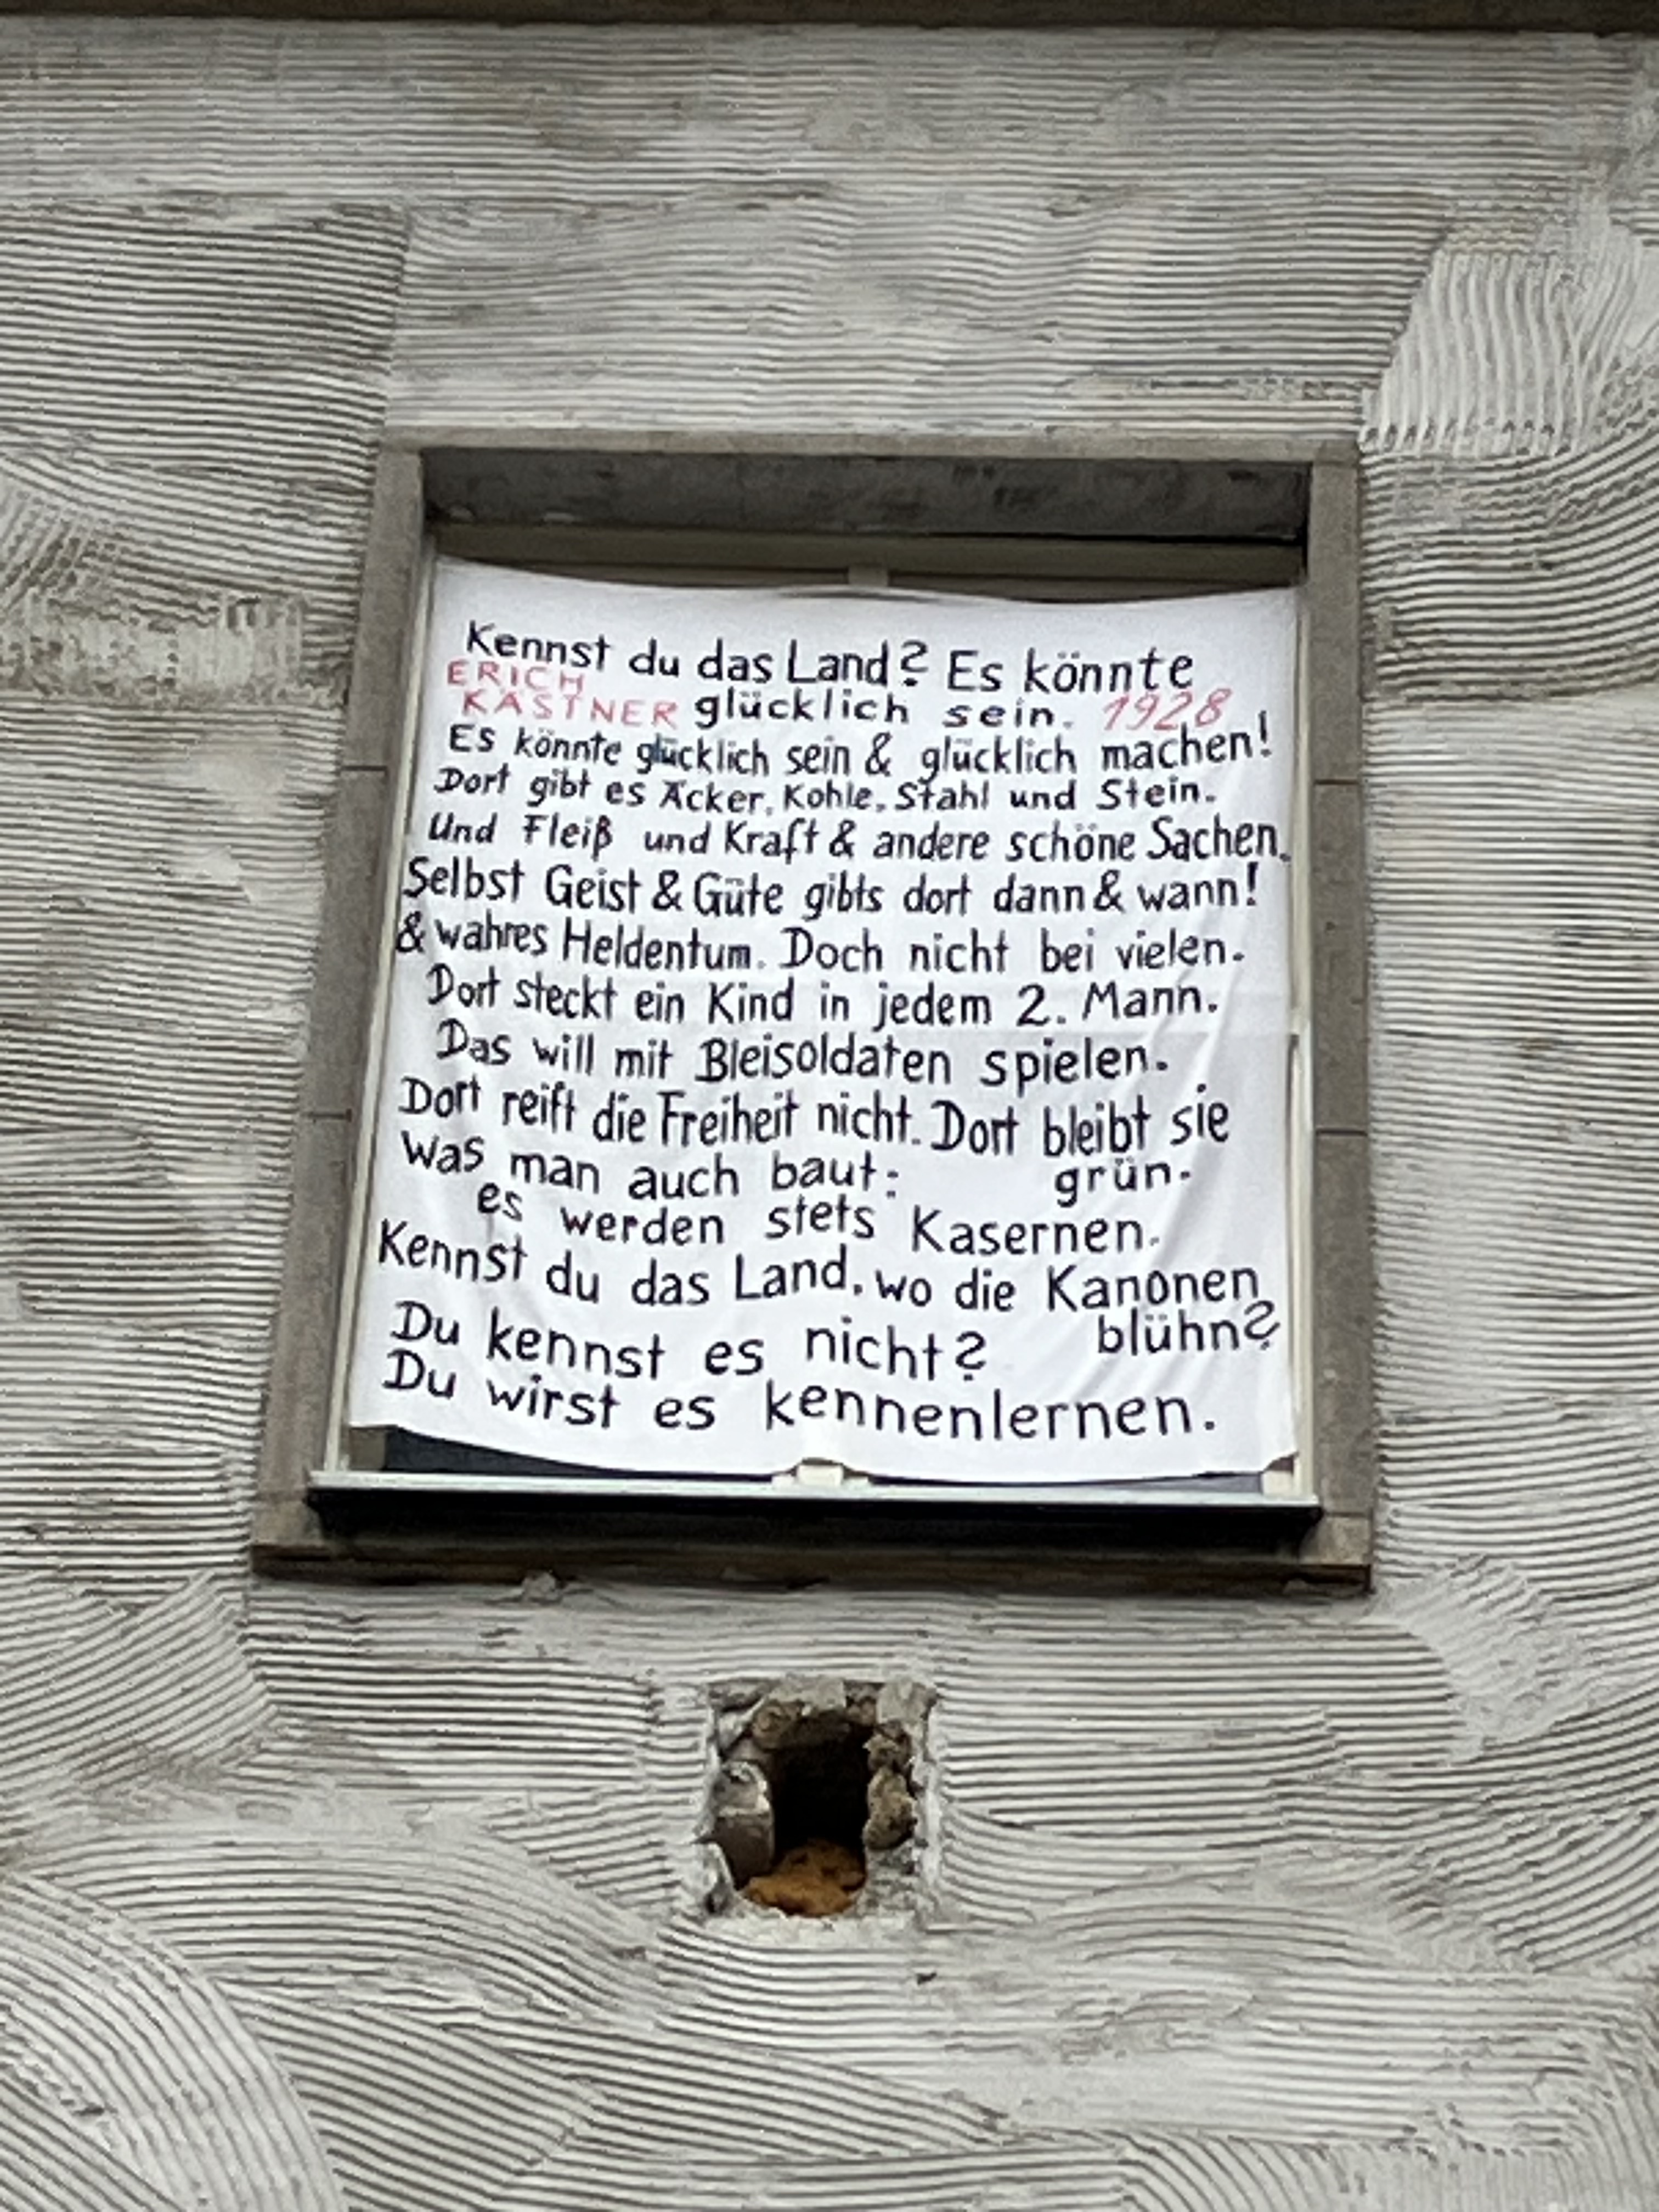 Kennst du das Land? Es könnte
ERICH
KÄSTNER glücklich sein. 1928
Es könnte glücklich sein & glücklich machen!
Dort gibt es Äcker, Kohle, Stahl und Stein.
Und Fleiß und Kraft & andere schöne Sachen.
Selbst Geist & Güte gibts dort dann & wann!
& wahres Heldentum. Doch nicht bei vielen.
Dort steckt ein Kind in jedem 2. Mann.
Das will mit Bleisoldaten spielen.
Dort reift die Freiheit nicht. Dort bleibt sie
Was man auch baut: grün.
es werden stets Kasernen.
Kennst du das Land, wo die Kanonen
blühn?
Du kennst es nicht?
Du wirst es kennenlernen.